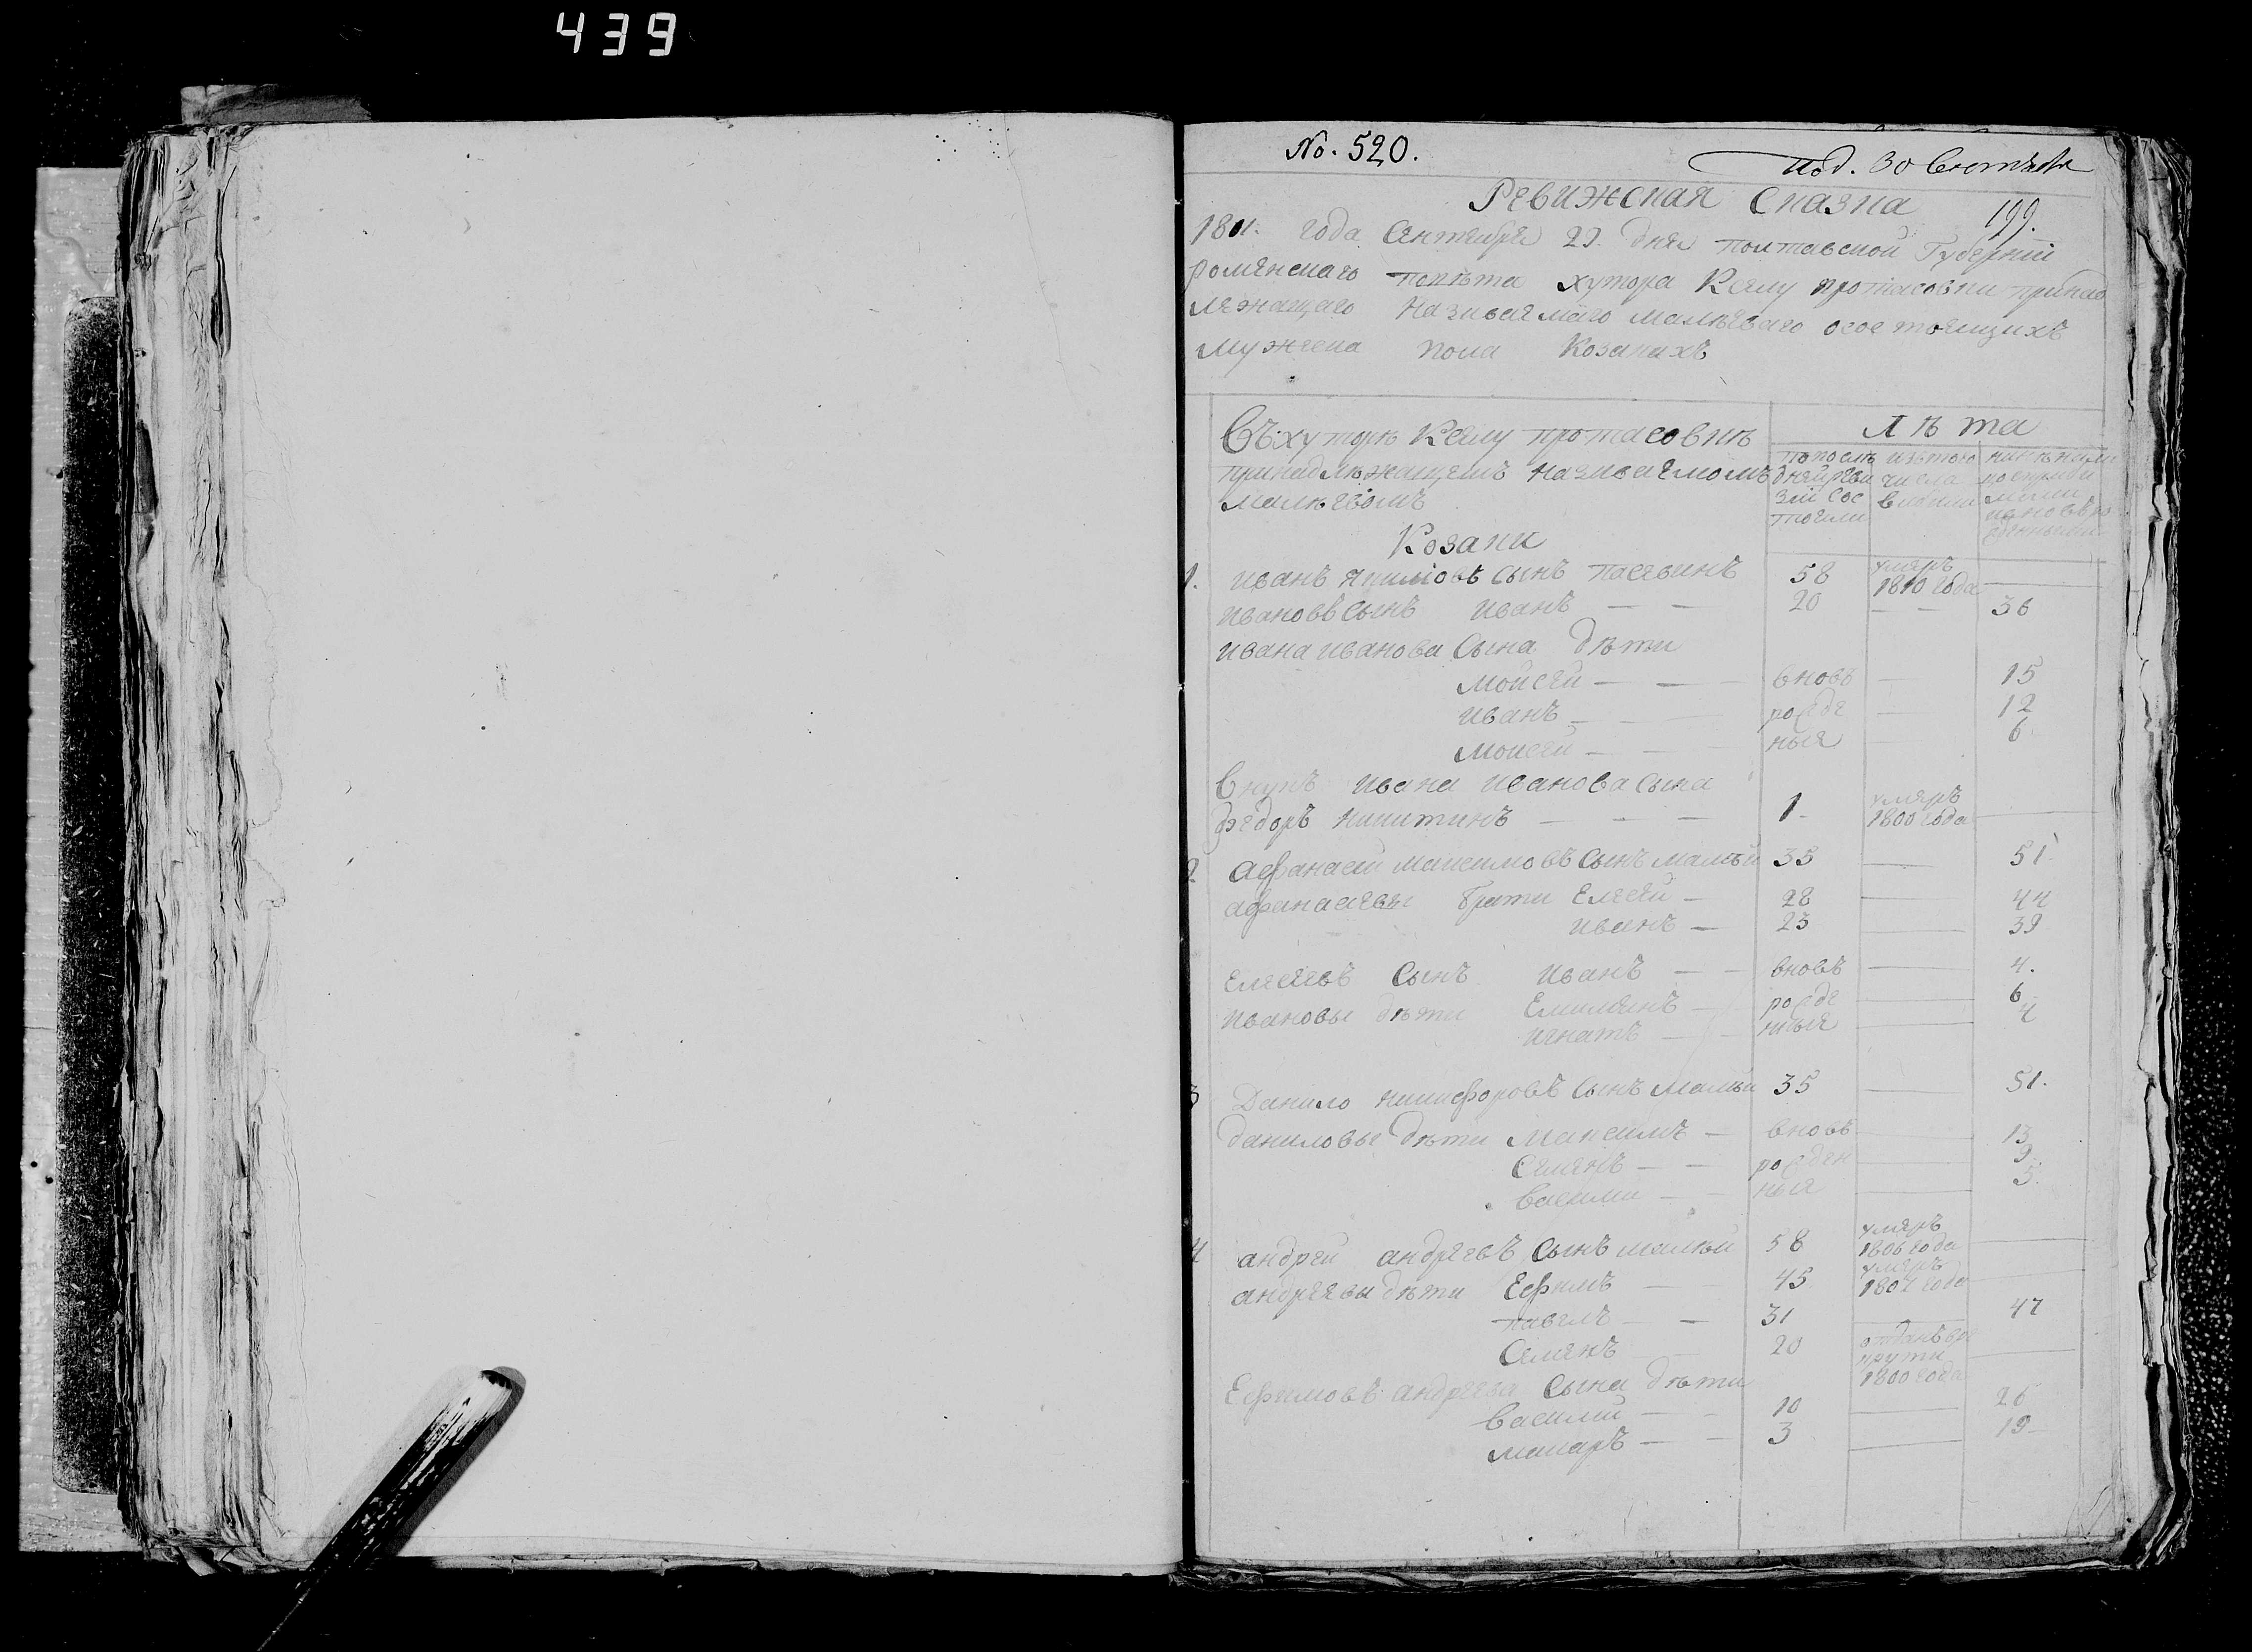 439
No. 520.
Под. 30 Сентября
Ревижская Сказка
199.
1811. года Сентября 29. дня полтавской Губерній
роменскаго повѣта хутора Кселу протасовки принад
лежащаго називаемаго малѣеваго осостоящихъ
мужеска пола Козакахъ
Въхуторѣ Кселу протасовкѣ
принадлѣжащемъ називаемомъ
малѣевомъ
Козаки
Лѣта
попослѣ
дней реви
зіи сос
тояли
изътого
числа
вибило
1. иванъ якимовъ сынъ пасевинъ 58 умеръ 1810 года —
ивановъ сынъ иванъ — — 20 — — 36
ивана иванова сына дѣти
мойсей — — — вновъ — 15
иванъ — — — рожде — 12
моисей — — — ния — 6
внукъ ивана иванова сына
федоръ никитинъ — — — 1 умеръ 1800 года —
2 афанасий максимовъ сынъ малѣй 35 — 51
афанасиевы брати Елесей — 28 — 44
иванъ — 23 — 39
Елесеевъ сынъ иванъ — — вновъ — 4.
ивановы дѣти Емилянъ — рожде — 6
игнатъ — — нныя — 4
3 Данило никифоровъ сынъ малѣй 35 — 51.
даниловые дѣти максимъ — вновъ — 13
Семенъ — — рожден — 9
василий — — ныя — 5.
4 андрей андреевъ сынъ малѣй 58 умеръ 1806 года —
андреевы дѣти Ефимъ — 45 умеръ 1801 года —
павелъ — — 31 — 47
Семенъ 20 отданъ в рекрути 1800 года —
Ефимовъ андреева сына дѣти
василий — — 10 — 26
макаръ — — 3 — 19